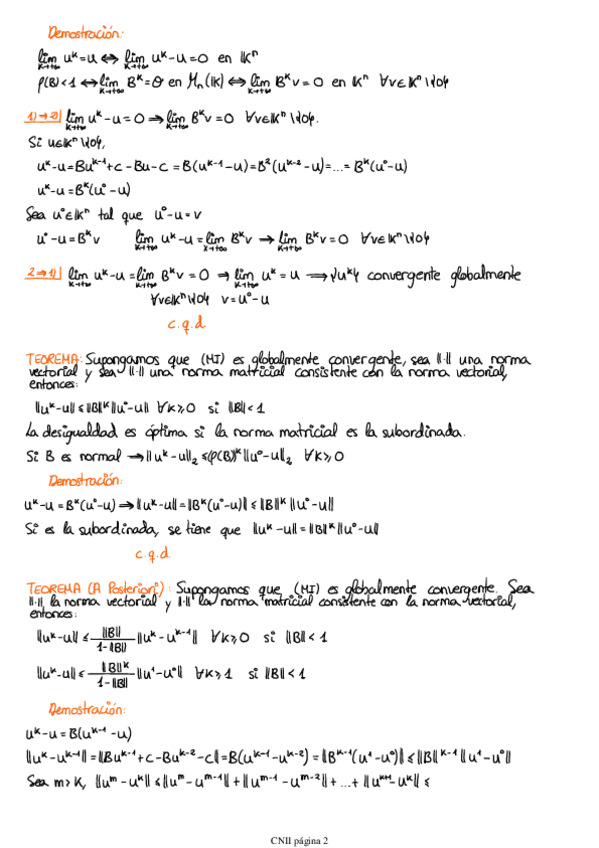 Demostración:
lim_{K→+∞} u^k = u ⇔ lim_{K→+∞} u^k - u = 0 en 𝕂^n
ρ(B) < 1 ⇔ lim_{K→+∞} B^k = Θ en M_n(𝕂) ⇔ lim_{K→+∞} B^k v = 0 en 𝕂^n ∀v∈𝕂^n\{0}
1)→2)| lim_{K→+∞} u^k - u = 0 ⇒ lim_{K→+∞} B^k v = 0 ∀v∈𝕂^n\{0}.
Si u∈𝕂^n\{0},
u^k - u = Bu^{k-1} + c - Bu - c = B(u^{k-1} - u) = B^2(u^{k-2} - u) = ... = B^k(u° - u)
u^k - u = B^k(u° - u)
Sea u°∈𝕂^n tal que u° - u = v
u° - u = B^k v lim_{K→+∞} u^k - u = lim_{K→+∞} B^k v → lim_{K→+∞} B^k v = 0 ∀v∈𝕂^n\{0}
2→1)| lim_{K→+∞} u^k - u = lim_{K→+∞} B^k v = 0 ⇒ lim_{K→+∞} u^k = u ⟹ {u^k} convergente globalmente
∀v∈𝕂^n\{0} v = u° - u
c.q.d
TEOREMA: Supongamos que (MI) es globalmente convergente, sea ||·|| una norma
vectorial y sea ||·|| una norma matricial consistente con la norma vectorial,
entonces:
||u^k - u|| ≤ ||B||^k ||u° - u|| ∀k ≥ 0 si ||B|| < 1
La desigualdad es óptima si la norma matricial es la subordinada.
Si B es normal → ||u^k - u||_2 ≤ ρ(B)^k ||u° - u||_2 ∀k ≥ 0
Demostración:
u^k - u = B^k(u° - u) ⇒ ||u^k - u|| = ||B^k(u° - u)|| ≤ ||B||^k ||u° - u||
Si es la subordinada, se tiene que ||u^k - u|| = ||B||^k ||u° - u||
c.q.d
TEOREMA (A Posteriori): Supongamos que (MI) es globalmente convergente. Sea
||·|| la norma vectorial y ||·|| la norma matricial consistente con la norma vectorial,
entonces:
||u^k - u|| ≤ ||B|| / (1 - ||B||) ||u^k - u^{k-1}|| ∀k ≥ 0 si ||B|| < 1
||u^k - u|| ≤ ||B||^k / (1 - ||B||) ||u^1 - u°|| ∀k ≥ 1 si ||B|| < 1
Demostración:
u^k - u = B(u^{k-1} - u)
||u^k - u^{k-1}|| = ||Bu^{k-1} + c - Bu^{k-2} - c|| = B(u^{k-1} - u^{k-2}) = ||B^{k-1}(u^1 - u°)|| ≤ ||B||^{k-1} ||u^1 - u°||
Sea m > K, ||u^m - u^k|| ≤ ||u^m - u^{m-1}|| + ||u^{m-1} - u^{m-2}|| + ... + ||u^{k+1} - u^k|| ≤
CNII página 2